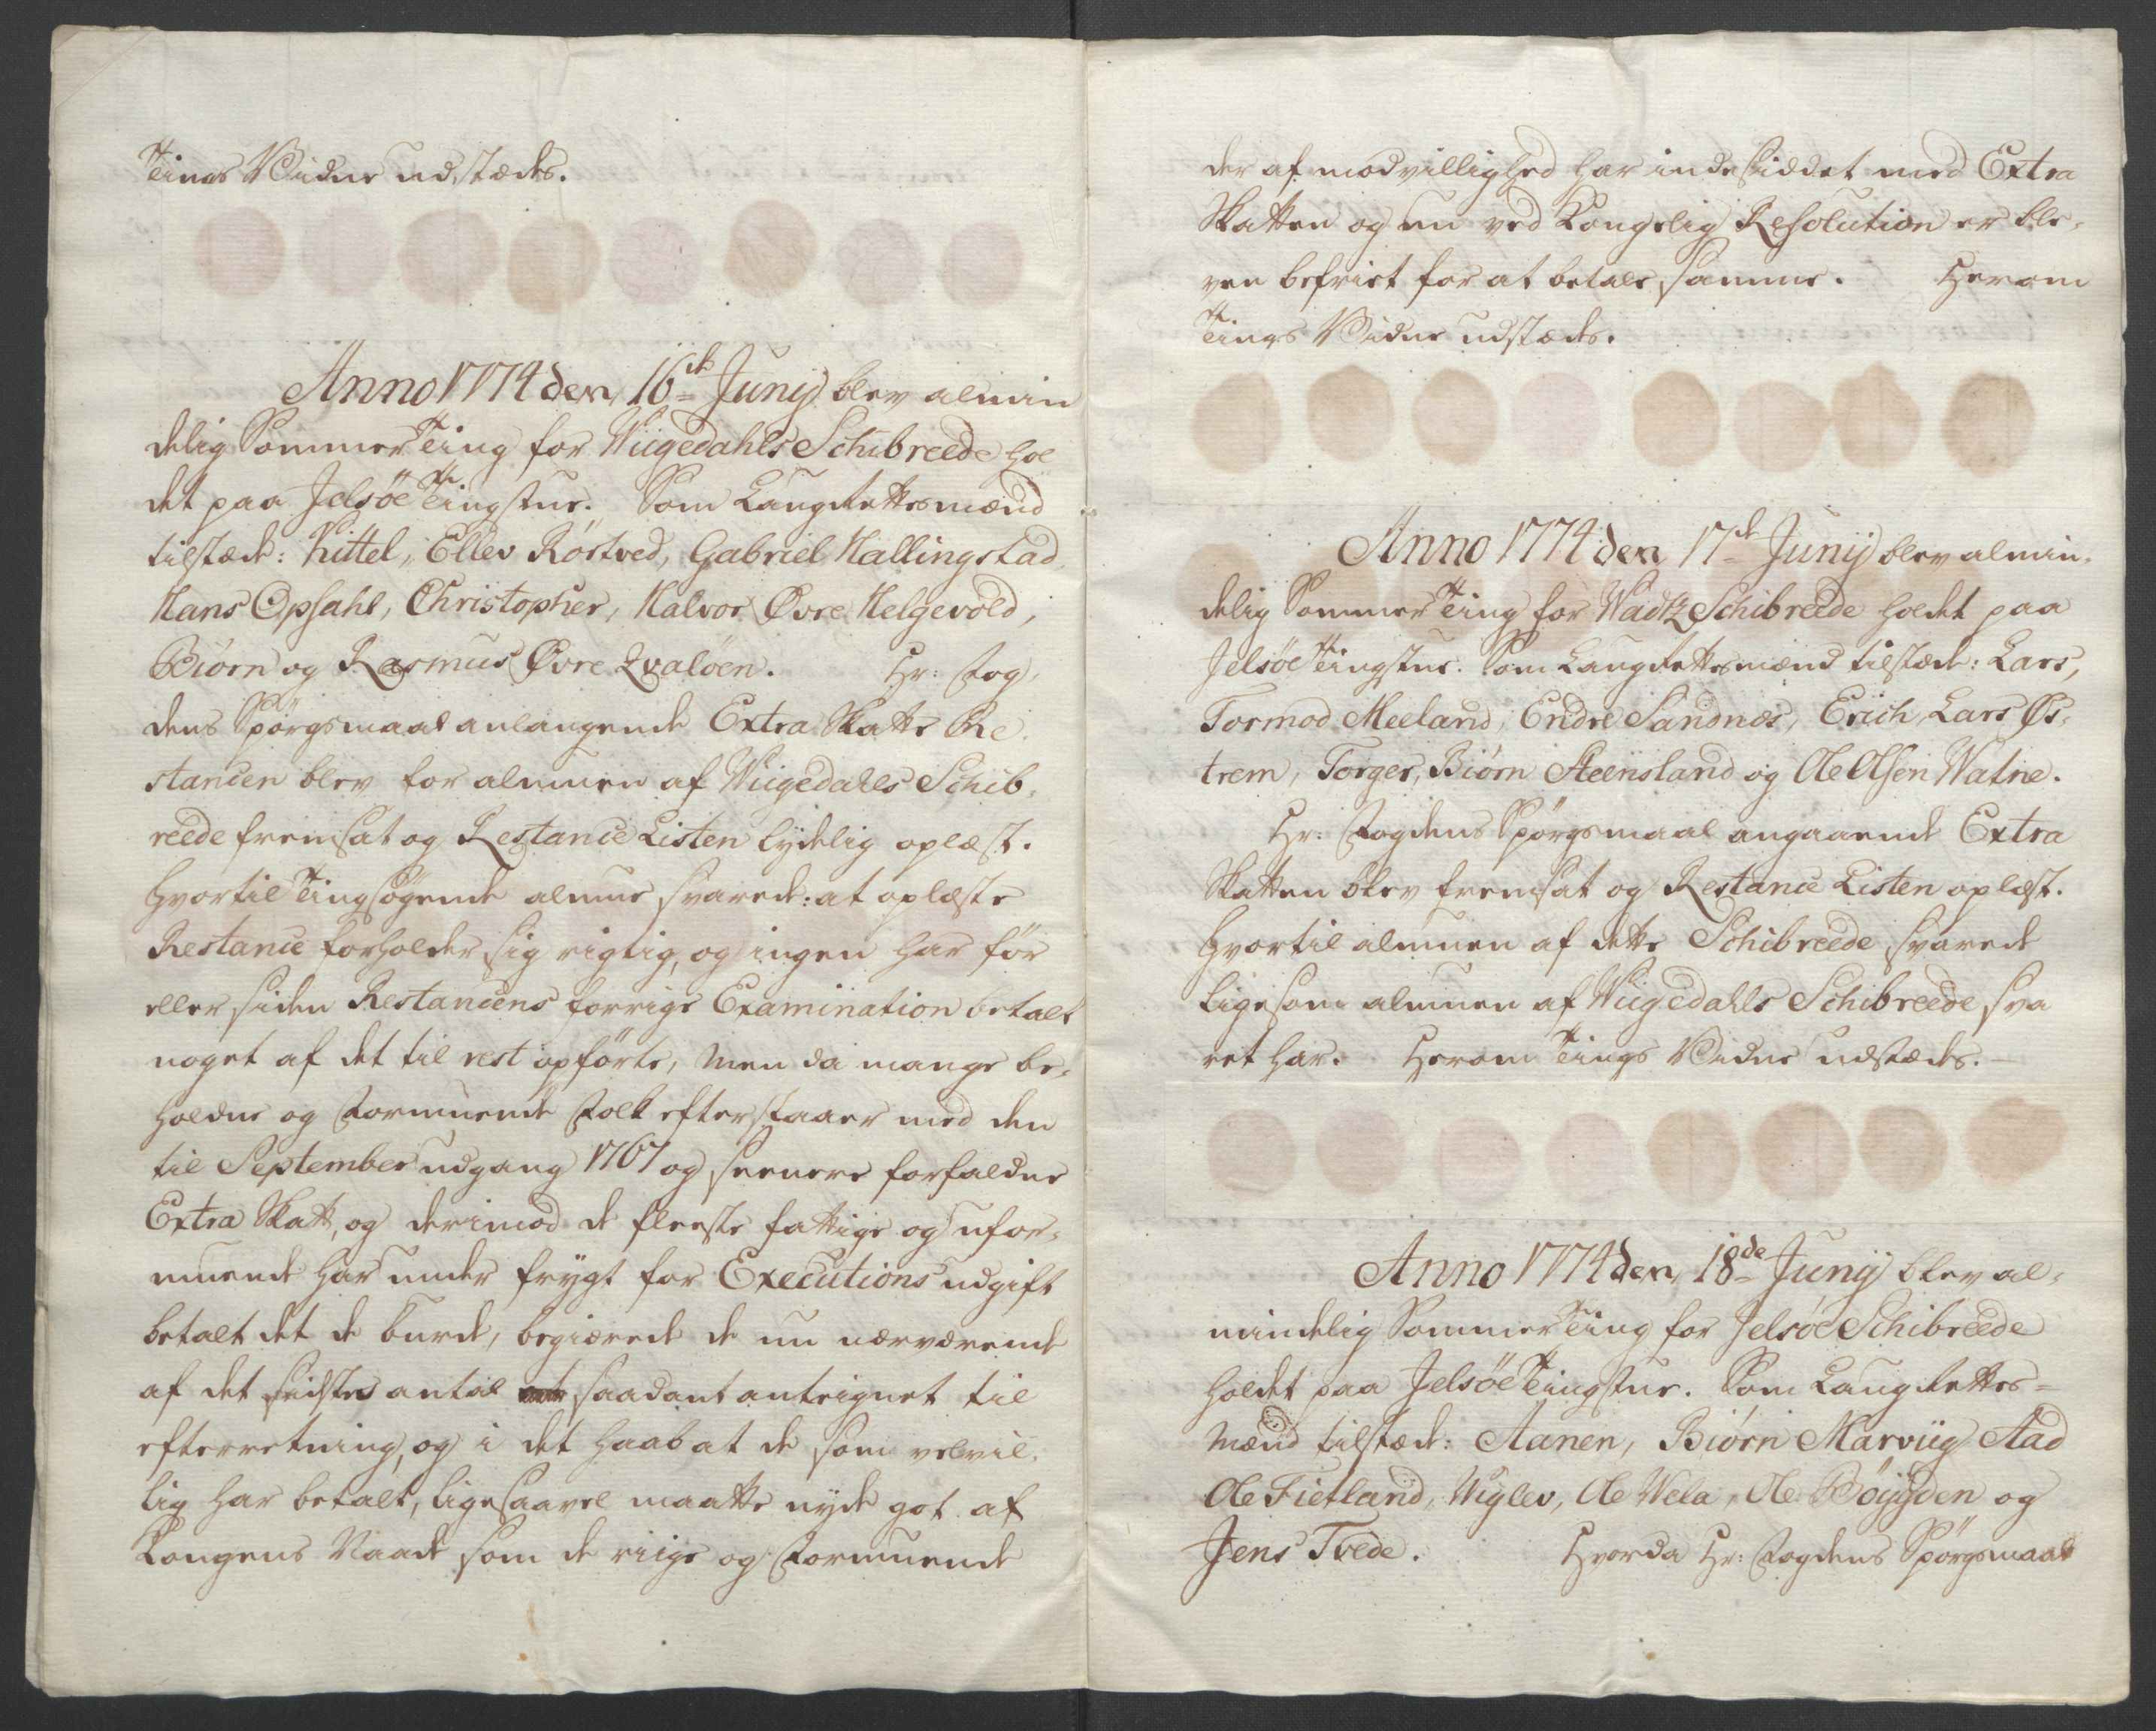 Tings Vidne udstædes.
Anno 1774 den 16de Junij blev almin
delig Sommer Ting for Wiigedahls Schibreede hol
det paa Jelsöe Tingstue. Som Laugrettesmænd
tilstæde: Kittel, Ellev Röstved, Gabriel Hallingstad,
Hans Opsahl, Christopher, Halvor Øvre Helgevold,
Biörn og Rasmus Øvre Qvalöen. Hr: Fog-
dens Spörgsmaal anlangende Extra Skatte Re-
stancen blev for almuen af Wiigedahls Schib-
reede fremsat og Restance Listen lydelig oplæst.
Hvortil Tingsögende almue svarede: at oplæste
Restance forholder sig rigtig, og ingen har før
eller siden Restancens forrige Examination betalt
noget af det til rest opførte, Men da mange be-
holdne og Formuende Folk efterstaaer med den
til September udgang 1767 og seenere forfaldne
Extra Skatt, og derimod de fleeste fattige og ufor-
muende har under frygt for Executions udgift
betalt det de burde, begiærede de nu nærværende
af det sidste antal saadant anteignet til
efterretning, og i det Haab at de som velvil-
lig har betalt, ligesaavel maatte nyde got af
Kongens Naade som de riige og Formuende
der af modvillighed har indesiddet med Extra
Skatten og nu ved Kongelig Resolution er ble-
ven befriet for at betale samme. Herom
Tings Vidne udstædes.
Anno 1774 den 17de Junij blev almin-
delig Sommer Ting for Wadtz Schibreede holdet paa
Jelsöe Tingstue. Som Laugrettesmænd tilstæde: Lars,
Tormod Meeland, Endre Sandnæs, Erich, Lars Øs-
trem, Torger, Biörn Steensland og Ole Olsen Watne.
Hr: Fogdens Spörgsmaal angaaende Extra
Skatten blev fremsat og Restance Listen oplæst.
Hvortil almuen af dette Schibreede svarede
ligesom almuen af Wiigedahls Schibreede sva
ret har. Herom Tings Vidne udstædes.
Anno 1774 den 18de Junij blev al-
mindelig Sommer Ting for Jelsöe Schibreede
holdet paa Jelsöe Tingstue. Som Laugrettes-
Mænd tilstæde: Aanen, Biörn Marviig, Aad
Ole Fietland, Wiglev, Ole Wela, Ole Böygden og
Jens Tvede. Hvorda Hr: Fogdens Spörgsmaal